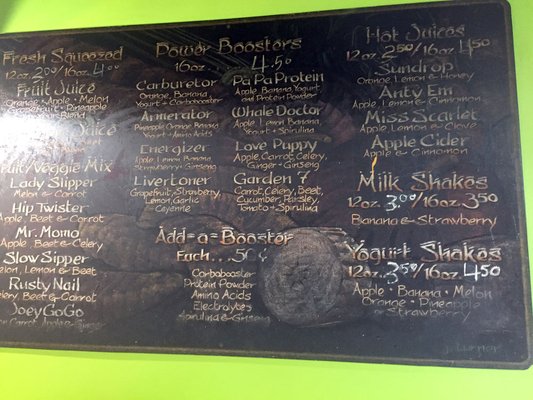 Fresh Squeezed
12oz. 2.00/16oz. 4.00
Fruit Juice
Orange • Apple • Melon
Grapefruit • Pineapple
Blend
Juice
Carrot
Fruit/Veggie Mix
Lady Slipper
Melon & Carrot
Hip Twister
Apple, Beet & Carrot
Mr. Momo
Apple, Beet & Celery
Slow Sipper
Melon, Lemon & Beet
Rusty Nail
Celery, Beet & Carrot
JoeyGoGo
Carrot, Apple &
Power Boosters
16oz. 4.50
Carburetor
Orange, Banana,
Yogurt + Carbobooster
Aminator
Pineapple, Orange, Banana
Yogurt + Amino Acids
Energizer
Apple, Lemon, Banana
Strawberry + Ginseng
Livertoner
Grapefruit, Strawberry,
Lemon, Garlic
Cayenne
Pa Pa Protein
Apple, Banana, Yogurt
and Protein Powder
Whale Doctor
Apple, Lemon, Banana,
Yogurt + Spirulina
Love Puppy
Apple, Carrot, Celery,
Ginger + Ginseng
Garden 7
Carrot, Celery, Beet,
Cucumber, Parsley,
Tomato + Spirulina
Add-a-Booster
Each... 50¢
Carbobooster
Protein Powder
Amino Acids
Electrolytes
Spirulina & Ginseng
Hot Juices
12oz. 2.50/16oz. 4.50
Sundrop
Orange, Lemon & Honey
Anty Em
Apple, Lemon & Cinnamon
Miss Scarlet
Apple, Lemon & Clove
Apple Cider
Apple & Cinnamon
Milk Shakes
12oz. 3.00/16oz. 3.50
Banana & Strawberry
Yogurt Shakes
12oz. 3.50/16oz. 4.50
Apple • Banana • Melon
Orange • Pineapple
or Strawberry